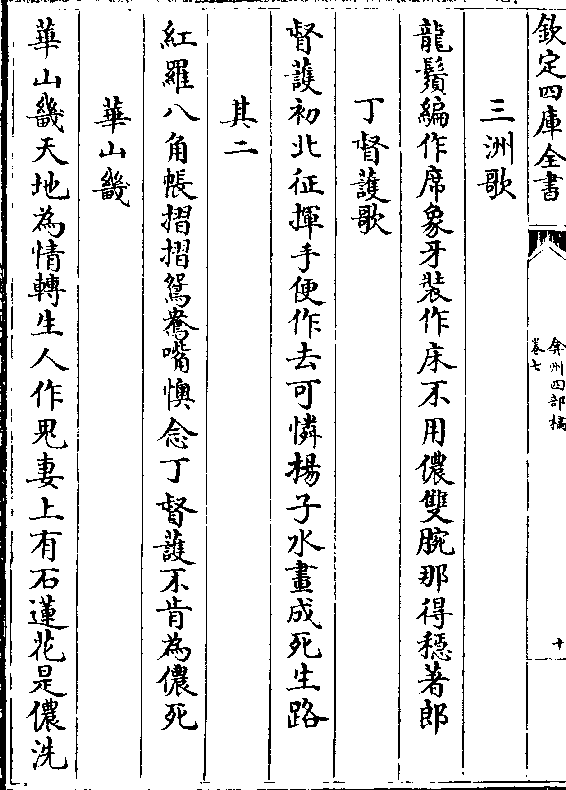 欽定四庫全書
弇州四部稿
卷七
十
三洲歌
龍鬚編作席象牙裝作床不用儂雙腕那得穩著郎
丁督護歌
督護初北征揮手便作去可憐揚子水畫成死生路
其二
紅羅八角帳摺摺鴛鴦嘴懊念丁督護不肯為儂死
華山畿
華山畿天地為情轉生人作鬼妻上有石蓮花是儂洗